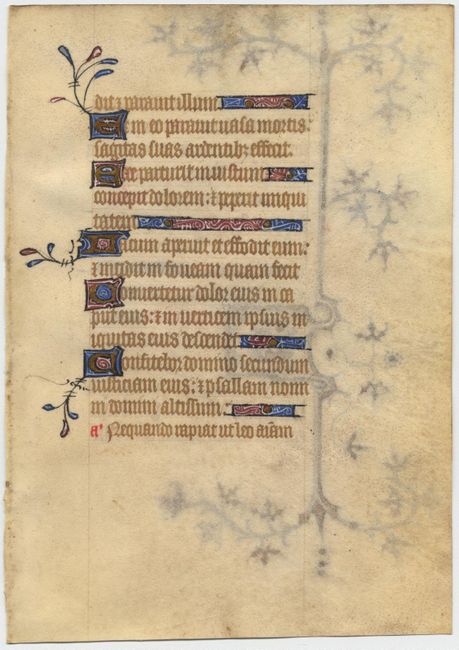 dit ⁊ parauit illum
Et in eo parauit uasa mortis:
sagitas suas ardentibꝫ effecit.
Ecce parturiit
concepit dolorem: ⁊ peperit iniqui
tatem
Lacum aperuit et effodit eum:
⁊ incidit in foueam quam fecit
Conuertetur dolor eius in ca
put eius: ⁊ in uerticem ipsius in
iquitas eius descendet
Confitebor domino secundum
iusticiam eius: ⁊ psallam nomi
ni domini altissimi.
aᵃ Nequando rapiat ut leo aīam